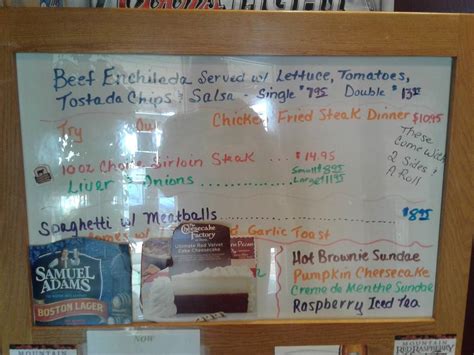 Beef Enchilada Served w/ Lettuce, Tomatoes,
Tostada Chips & Salsa - Single $7.95 Double $13.95
Try Our Chicken Fried Steak Dinner $10.95
These
Come With
2 Sides &
A Roll
10 oz Choice Sirloin Steak ... $14.95
Liver & Onions ........... Small 8.95
Large 11.95
Spaghetti w/ Meatballs ............ $8.95
Comes w/ Garlic Toast
The Cheesecake Factory
Ultimate Red Velvet
Cake Cheesecake
SAMUEL
ADAMS
BOSTON LAGER
Hot Brownie Sundae
Pumpkin Cheesecake
Creme de Menthe Sundae
Raspberry Iced Tea
NOW
MOUNTAIN
MOUNTAIN